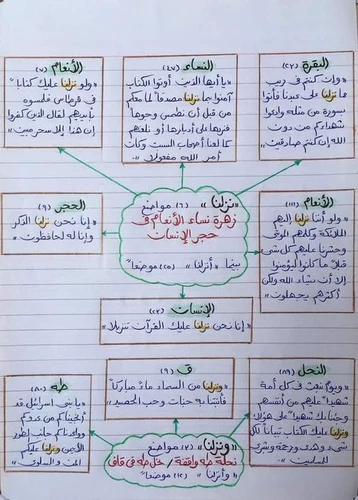 البقرة (٢٣)
«وإن كنتم في ريب
مما نزلنا على عبدنا فأتوا
بسورة من مثله وادعوا
شهداءكم من دون
الله إن كنتم صادقين»
النساء (٤٧)
«يا أيها الذين أوتوا الكتاب
آمنوا بما نزلنا مصدقاً لما معكم
من قبل أن نطمس وجوهاً
فنردها على أدبارها أو نلعنهم
كما لعنا أصحاب السبت وكان
أمر الله مفعولا»
الأنعام (٧)
«ولو نزلنا عليك كتاباً
في قرطاس فلمسوه
بأيديهم لقال الذين كفروا
إن هذا إلا سحر مبين»
الأنعام (١١١)
«ولو أننا نزلنا إليهم
الملائكة وكلمهم الموتى
وحشرنا عليهم كل شيء
قبلاً ما كانوا ليؤمنوا
إلا أن يشاء الله ولكن
أكثرهم يجهلون»
«نزلنا» (٦) مواضع
زهرة نساء الأنعام في
حجر الإنسان
بينما «أنزلنا» (٢٥) موضعاً
الحجر (٩)
«إنا نحن نزلنا الذكر
وإنا له لحافظون»
الإنسان (٢٣)
«إنا نحن نزلنا عليك القرآن تنزيلا»
النحل (٨٩)
«ويوم نبعث في كل أمة
شهيداً عليهم من أنفسهم
وجئنا بك شهيداً على هؤلاء
ونزلنا عليك الكتاب تبياناً لكل
شيء وهدى ورحمة وبشرى
للمسلمين»
ق (٩)
«ونزلنا من السماء ماء مباركاً
فأنبتنا به جنات وحب الحصيد»
طه (٨٠)
«يا بني إسرائيل قد
أنجيناكم من عدوكم
وواعدناكم جانب الطور
الأيمن ونزلنا عليكم
المن والسلوى»
«ونزلنا» (٣) مواضع
نحلة طه واقفة / نحل طه في قاف
«وأنزلنا» (١٢) موضعاً